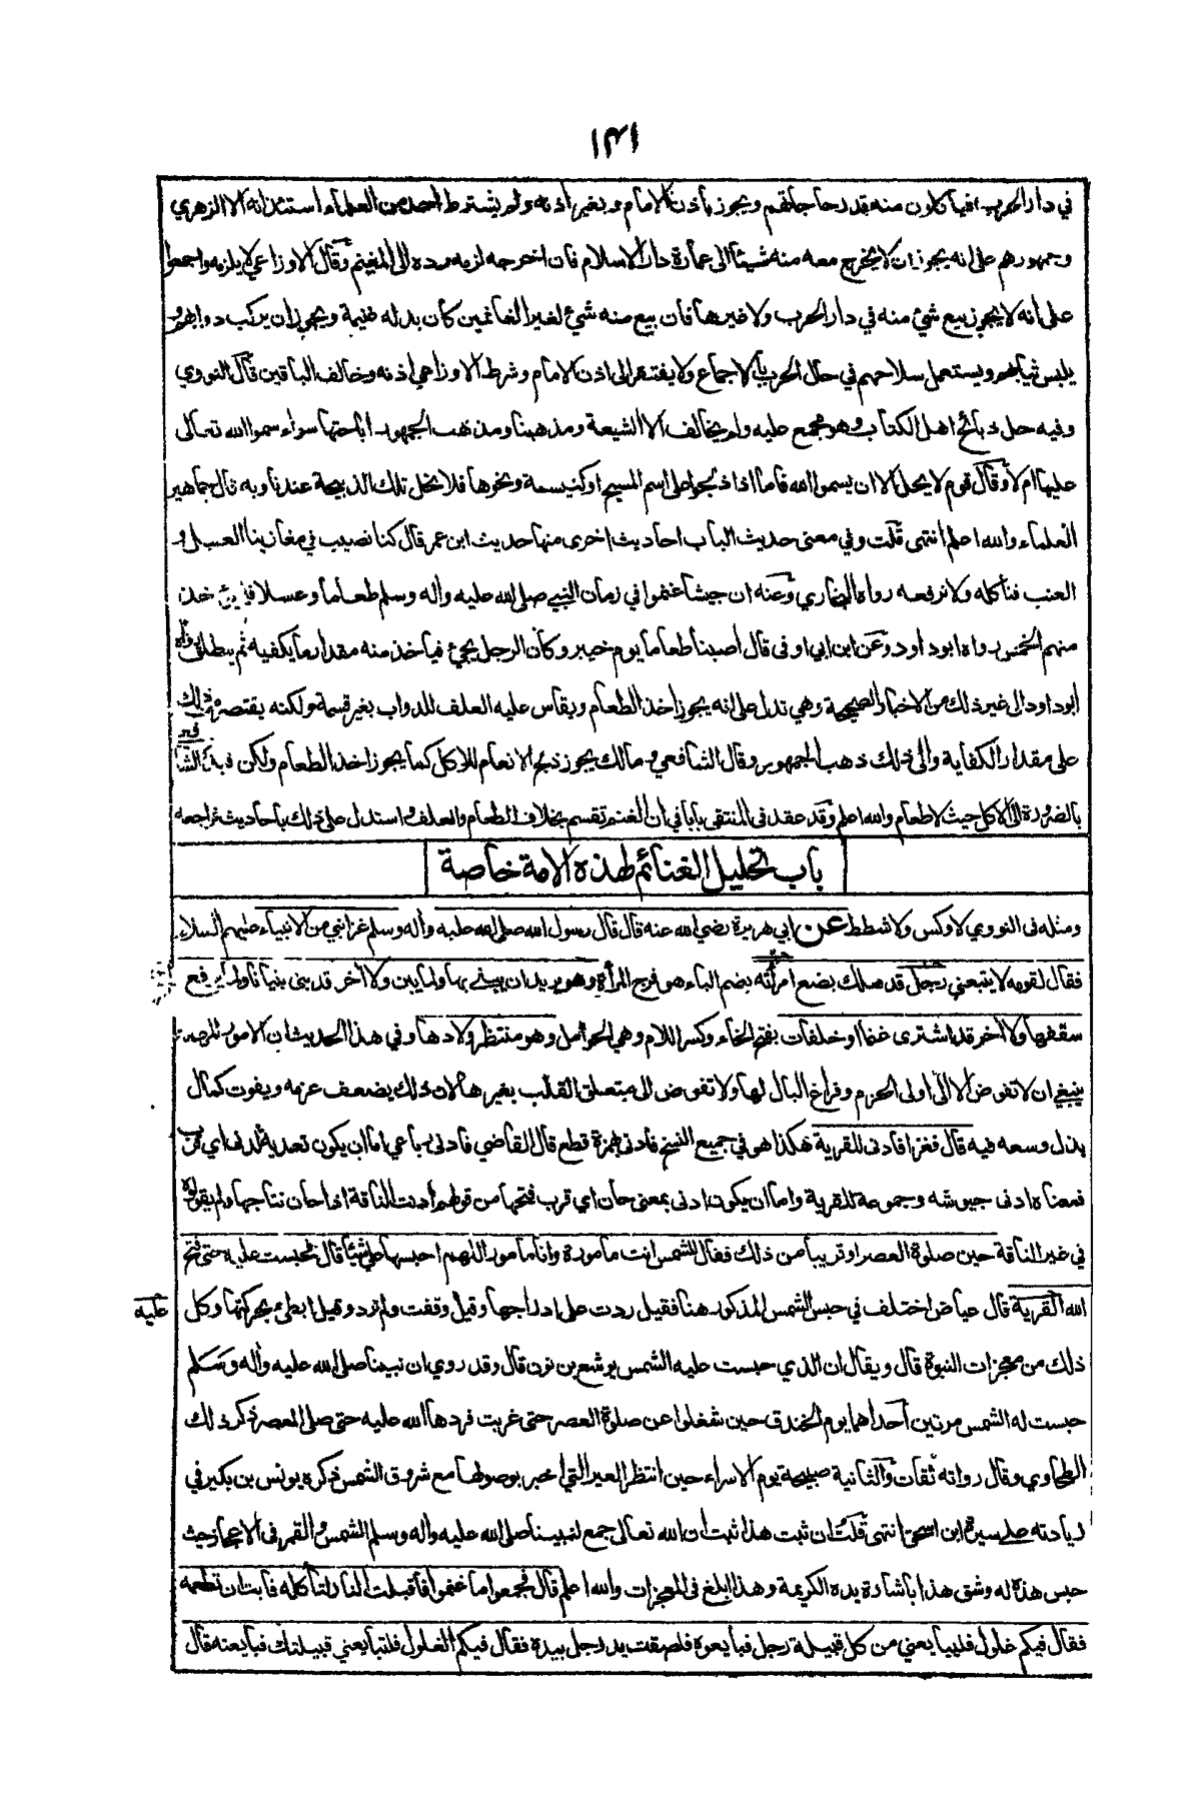 ١٣١
في دار الحرب فياكلون منه قدر حاجاتهم ويجوز باذن الامام وبغير اذنه ولم يشترط احد من العلماء استئذانه الا الزهري
وجمهورهم على انه يجوز ان لا يخرج معه منه شيئا الى عمارة دار الاسلام فان اخرجه لزمه رده الى المغنم وقال الاوزاعي لا يلزمه واجمعوا
على انه لا يجوز بيع شيء منه في دار الحرب ولا غيرها فان بيع منه شيء لغير الغانمين كان بدله غنيمة ويجوز ان يركب دوابهم و
يلبس ثيابهم ويستعمل سلاحهم في حال الحرب بالاجماع ولا يفتقر الى اذن الامام وشرط الاوزاعي اذنه وخالف الباقين قال النووي
وفيه حل ذبائح اهل الكتاب وهو مجمع عليه ولم يخالف الا الشيعة ومذهبنا ومذهب الجمهور اباحتها سواء سموا الله تعالى
عليها ام لا وقال قوم لا يحل الا ان يسموا الله فاما اذا ذبحوا على اسم المسيح او كنيسة ونحوها فلا تحل تلك الذبيحة عندنا وبه قال جماهير
العلماء والله اعلم انتهى قلت وفي معنى حديث الباب احاديث اخرى منها حديث ابن عمر قال كنا نصيب في مغازينا العسل و
العنب فناكله ولا نرفعه رواه البخاري وعنه ان جيشا غنموا في زمان النبي صلى الله عليه واله وسلم طعاما وعسلا فلم يؤخذ
منهم الخمس رواه ابو داود وعن ابن ابي اوفى قال اصبنا طعاما يوم خيبر وكان الرجل يجيء فياخذ منه مقدار ما يكفيه ثم ينطلق رواه
ابو داود الى غير ذلك من الاخبار الصحيحة وهي تدل على انه يجوز اخذ الطعام ويقاس عليه العلف للدواب بغير قسمة ولكنه يقتصر من ذلك
على مقدار الكفاية والى ذلك ذهب الجمهور وقال الشافعي ومالك يجوز ذبح الانعام للاكل كما يجوز اخذ الطعام ولكن قيده الشافعي
بالضرورة الى الاكل حيث لا طعام والله اعلم وقد عقد في المنتقى بابا في ان الغنم تقسم بخلاف الطعام والعلف واستدل على ذلك باحاديث فراجعه
باب تحليل الغنائم لهذه الامة خاصة
ومثله في النووي لا وكس ولا شطط عن ابي هريرة رضي الله عنه قال قال رسول الله صلى الله عليه واله وسلم غزا نبي من الانبياء عليهم السلام
فقال لقومه لا يتبعني رجل قد ملك بضع امرأته بضم الباء هو فرج المرأة وهو يريد ان يبني بها ولما يبن ولا آخر قد بنى بنيانا ولما يرفع
سقفها ولا آخر قد اشترى غنما او خلفات بفتح الخاء وكسر اللام وهي الحوامل وهو منتظر ولادها وفي هذا الحديث ان الامور المهمة
ينبغي ان لا تفوض الا الى اولى الحزم وفراغ البال لها ولا تفوض الى متعلق القلب بغيرها لان ذلك يضعف عزمه ويفوت كمال
بذل وسعه فيه قال فغزا فادنى للقرية هكذا هو في جميع النسخ فادنى بهمزة قطع قال القاضي فادنى رباعي اما ان يكون تعدية لدنى اي قرب
فمعناه ادنى جيوشه وجموعه للقرية واما ان يكون ادنى بمعنى حان اي قرب فتحها من قولهم ادنت الناقة اذا حان نتاجها ولم يقولوه
في غير الناقة حين صلوة العصر او قريبا من ذلك فقال للشمس انت مامورة وانا مامور اللهم احبسها علي شيئا قال فحبست عليه حتى فتح
الله القرية قال عياض اختلف في حبس الشمس المذكور هنا فقيل ردت على ادراجها وقيل وقفت ولم ترد وقيل ابطئ بحركتها وكل
عليه
ذلك من معجزات النبوة قال ويقال ان الذي حبست عليه الشمس يوشع بن نون قال وقد روي ان نبينا صلى الله عليه واله وسلم
حبست له الشمس مرتين احداهما يوم الخندق حين شغلوا عن صلوة العصر حتى غربت فردها الله عليه حتى صلى العصر ذكر ذلك
الطحاوي وقال رواته ثقات والثانية صبيحة يوم الاسراء حين انتظر العير التي اخبر بوصولها مع شروق الشمس ذكره يونس بن بكير في
زيادته على سيرة ابن اسحق انتهى قلت ان ثبت هذا ثبت ان الله تعالى جمع لنبينا صلى الله عليه واله وسلم الشمس والقمر في الاعجاز حيث
حبس هذه له وشق هذا باشارة يده الكريمة وهذا ابلغ في المعجزات والله اعلم قال فجمعوا ما غنموا فاقبلت النار لتاكله فابت ان تطعمه
فقال فيكم غلول فليبايعني من كل قبيلة رجل فبايعوه فلصقت يد رجل بيده فقال فيكم الغلول فلتبايعني قبيلتك فبايعته قال